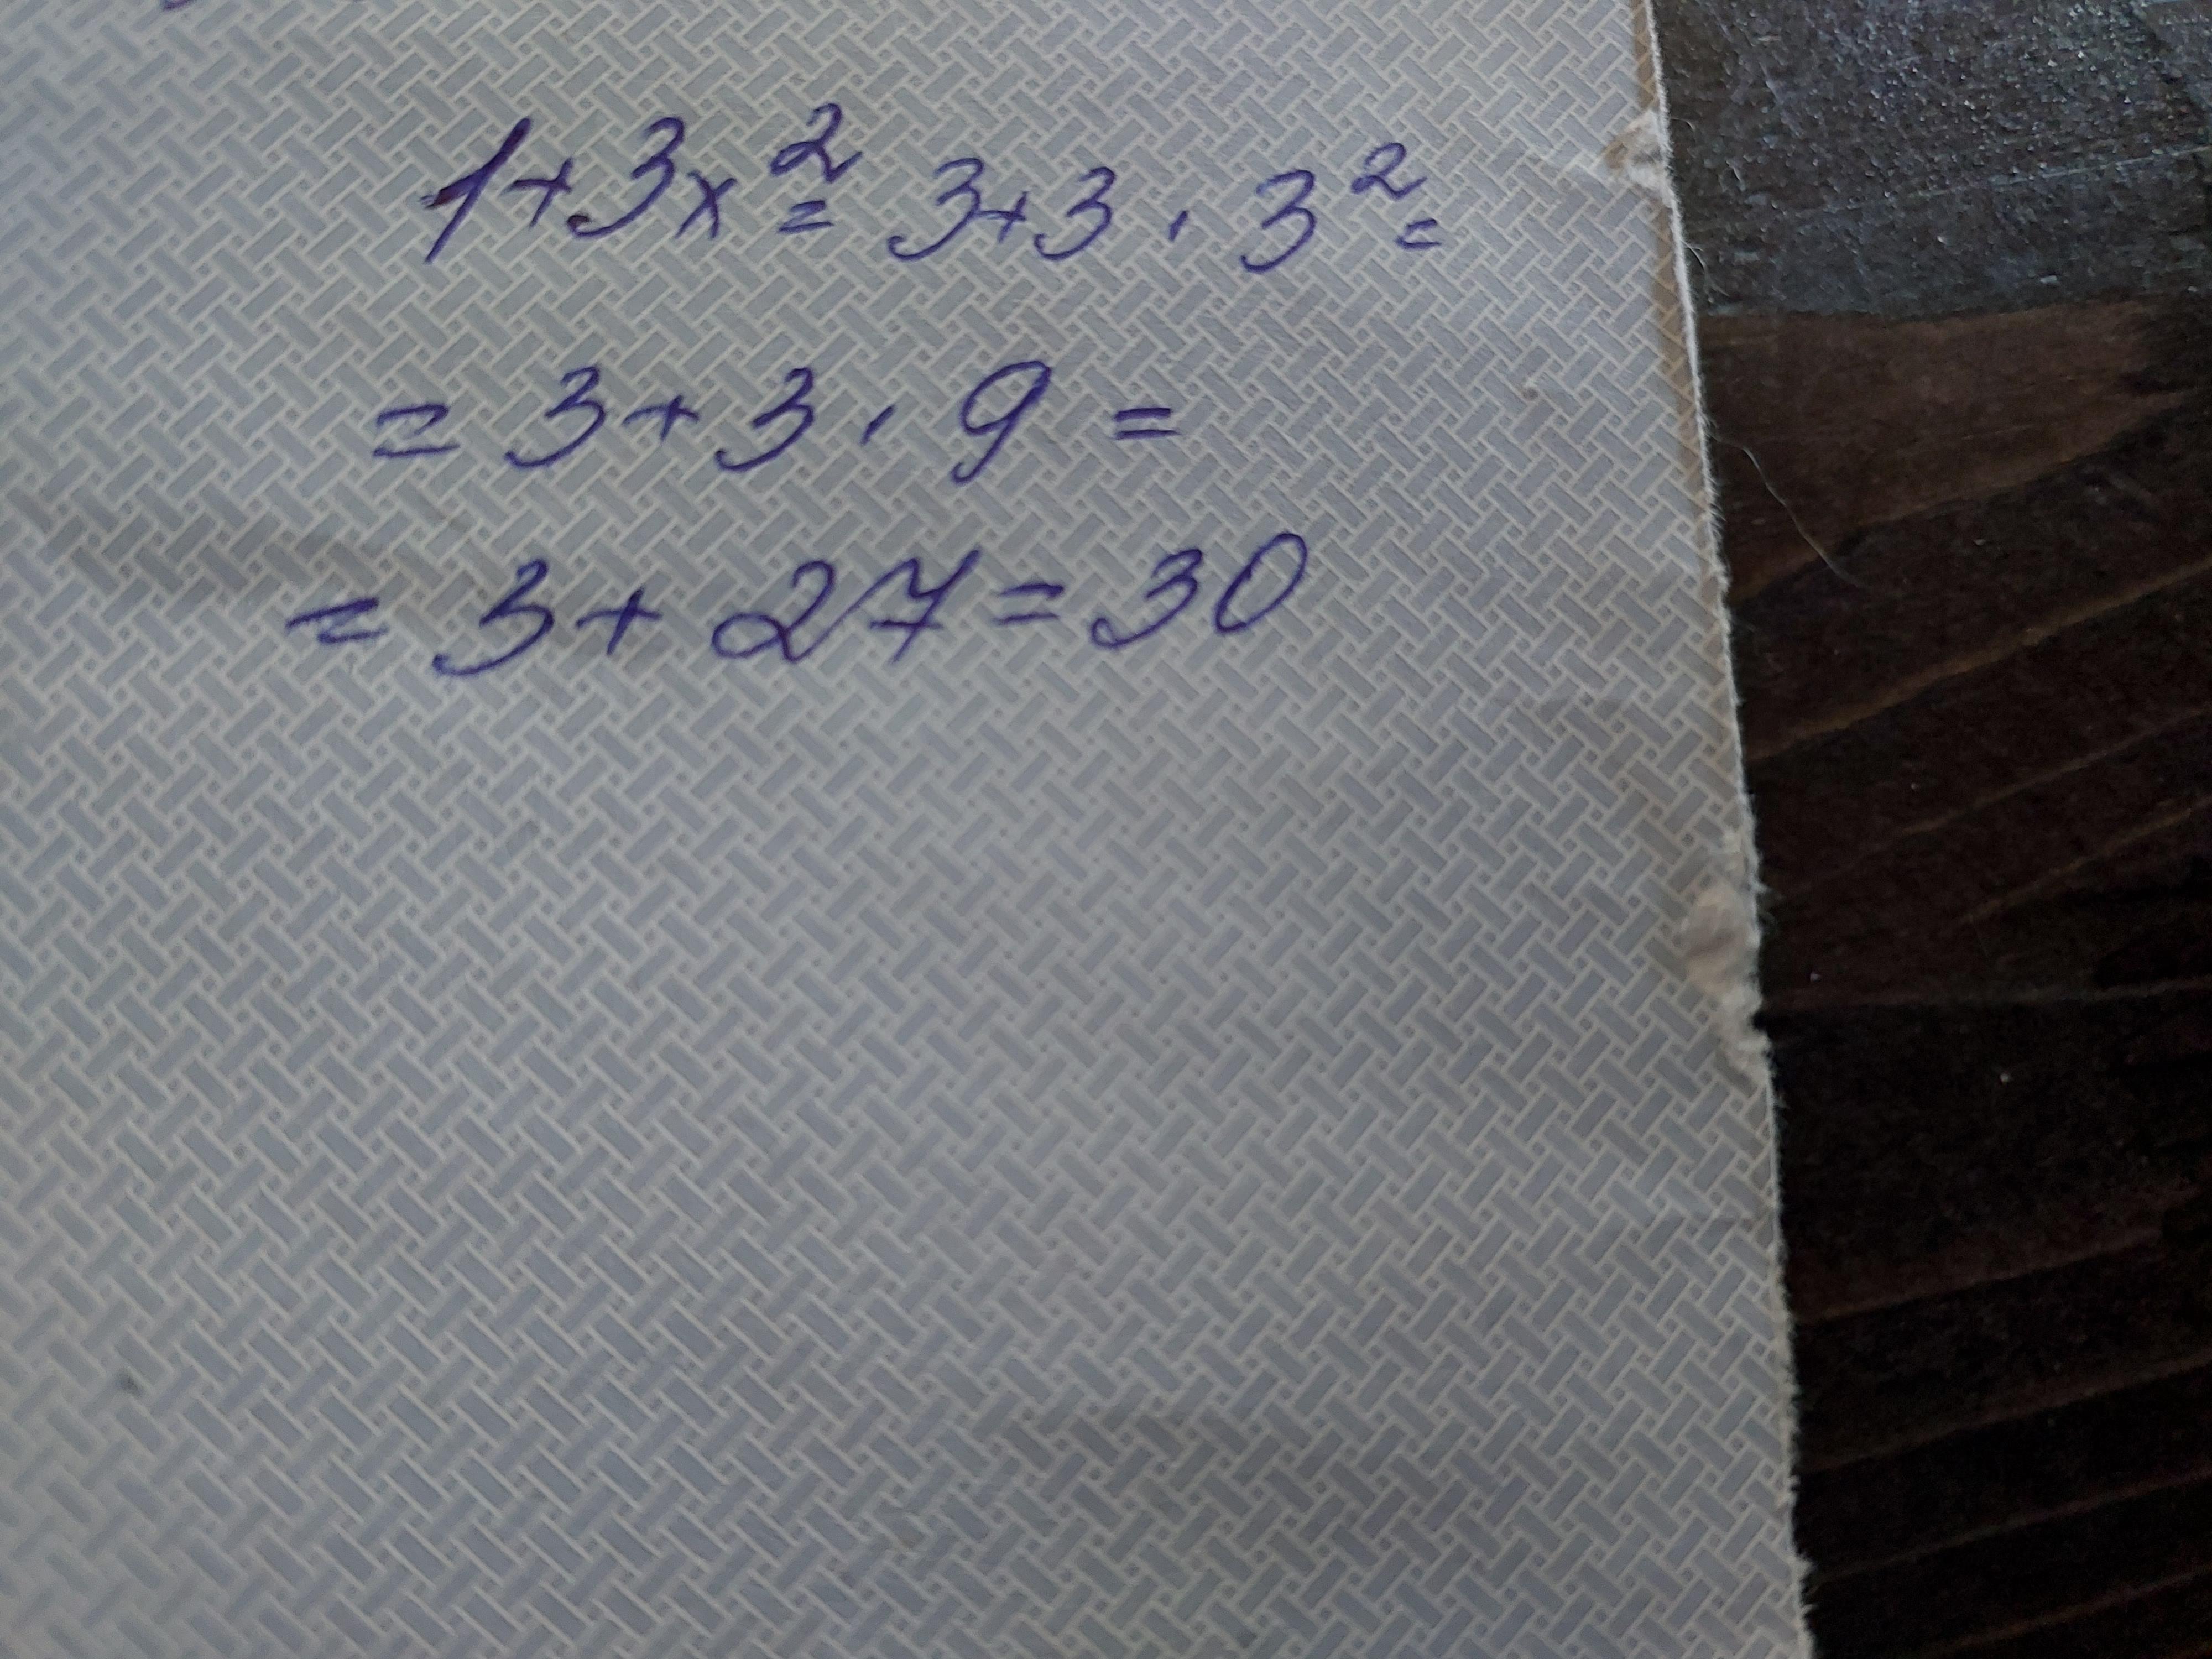 1+3x²= 3+3·3²=
= 3+3·9=
= 3+27=30